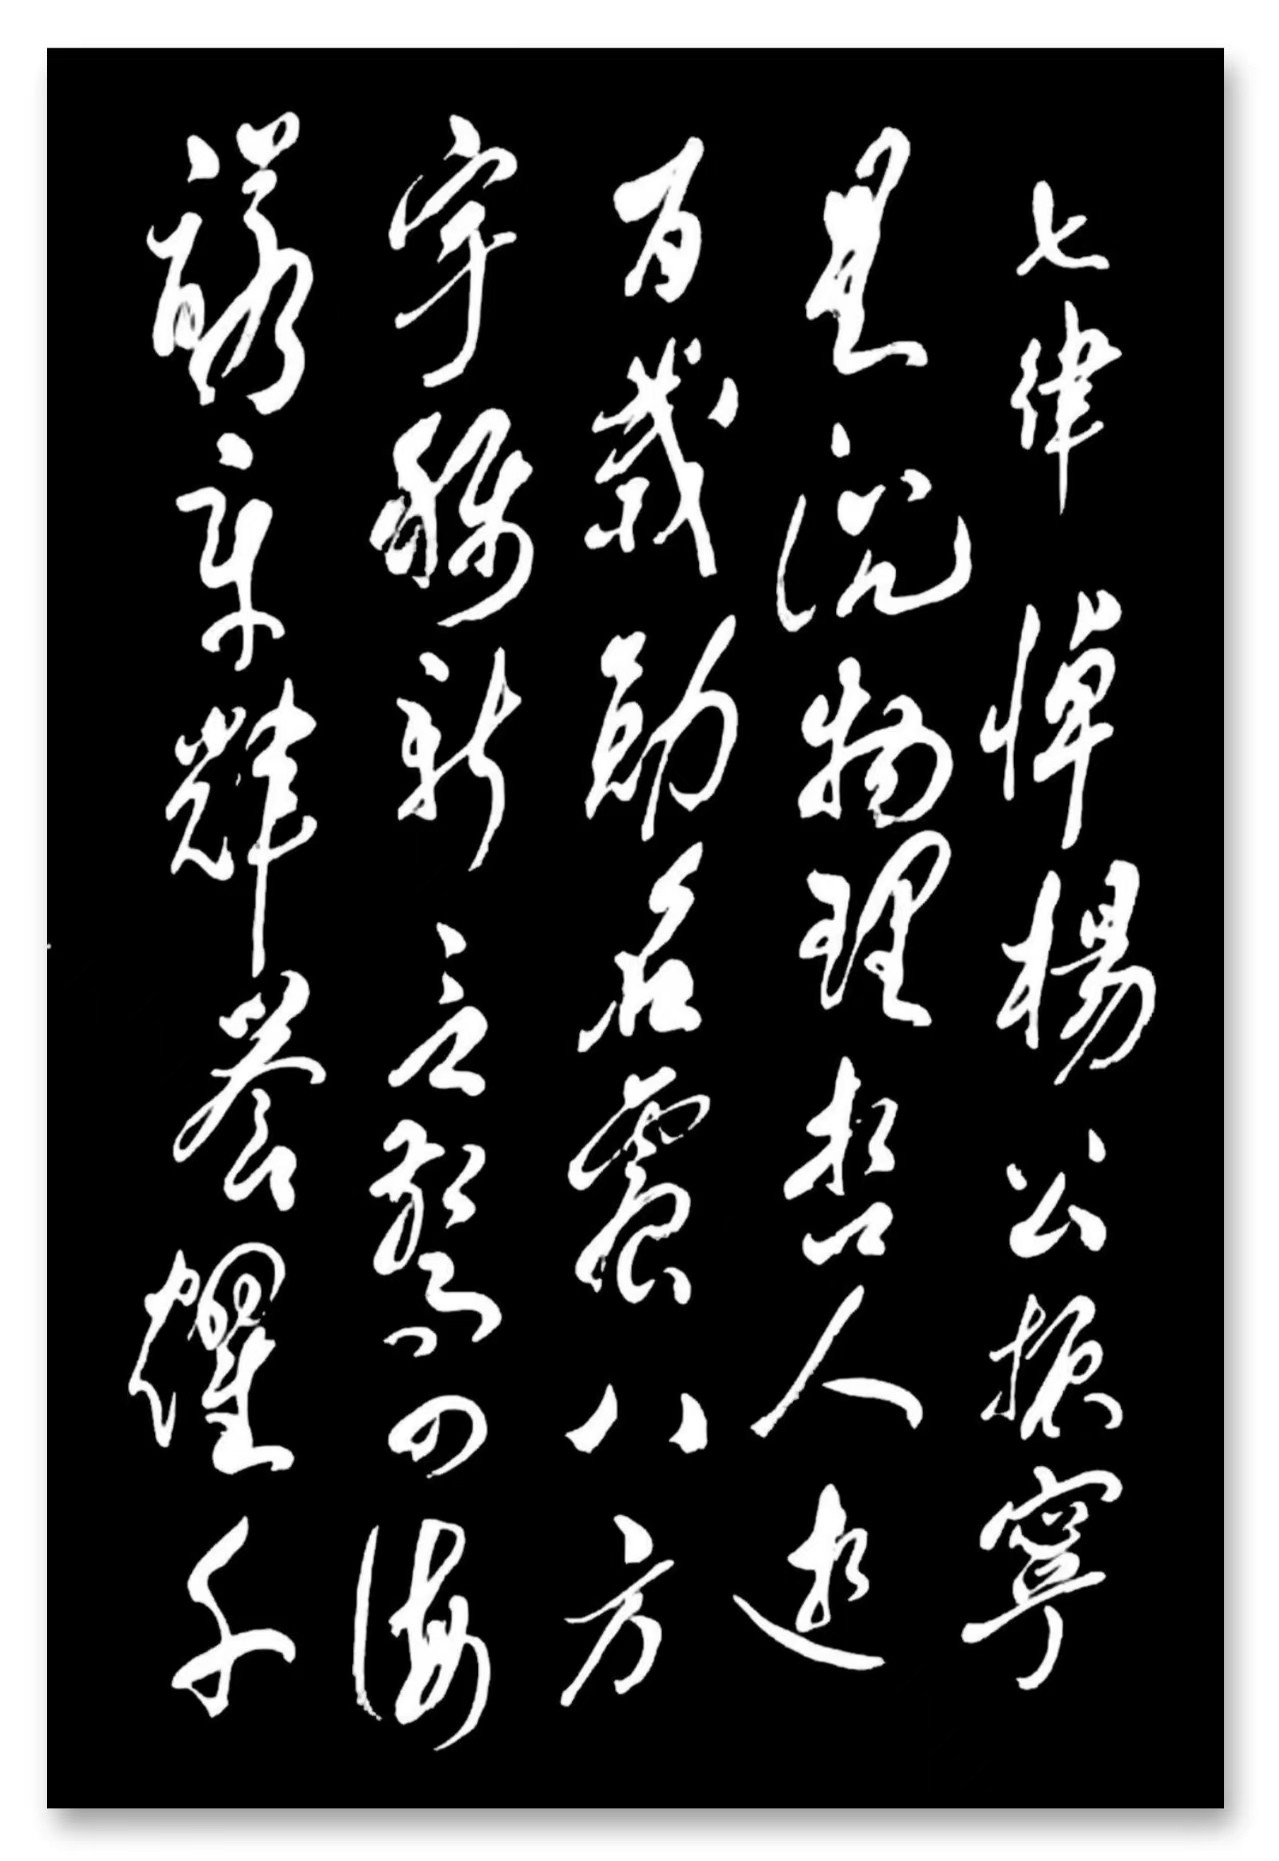 七律 悼楊公振寧
星沉物理哲人逝
百歲勛名震八方
宇稱新立驚四海
章輝譽耀千